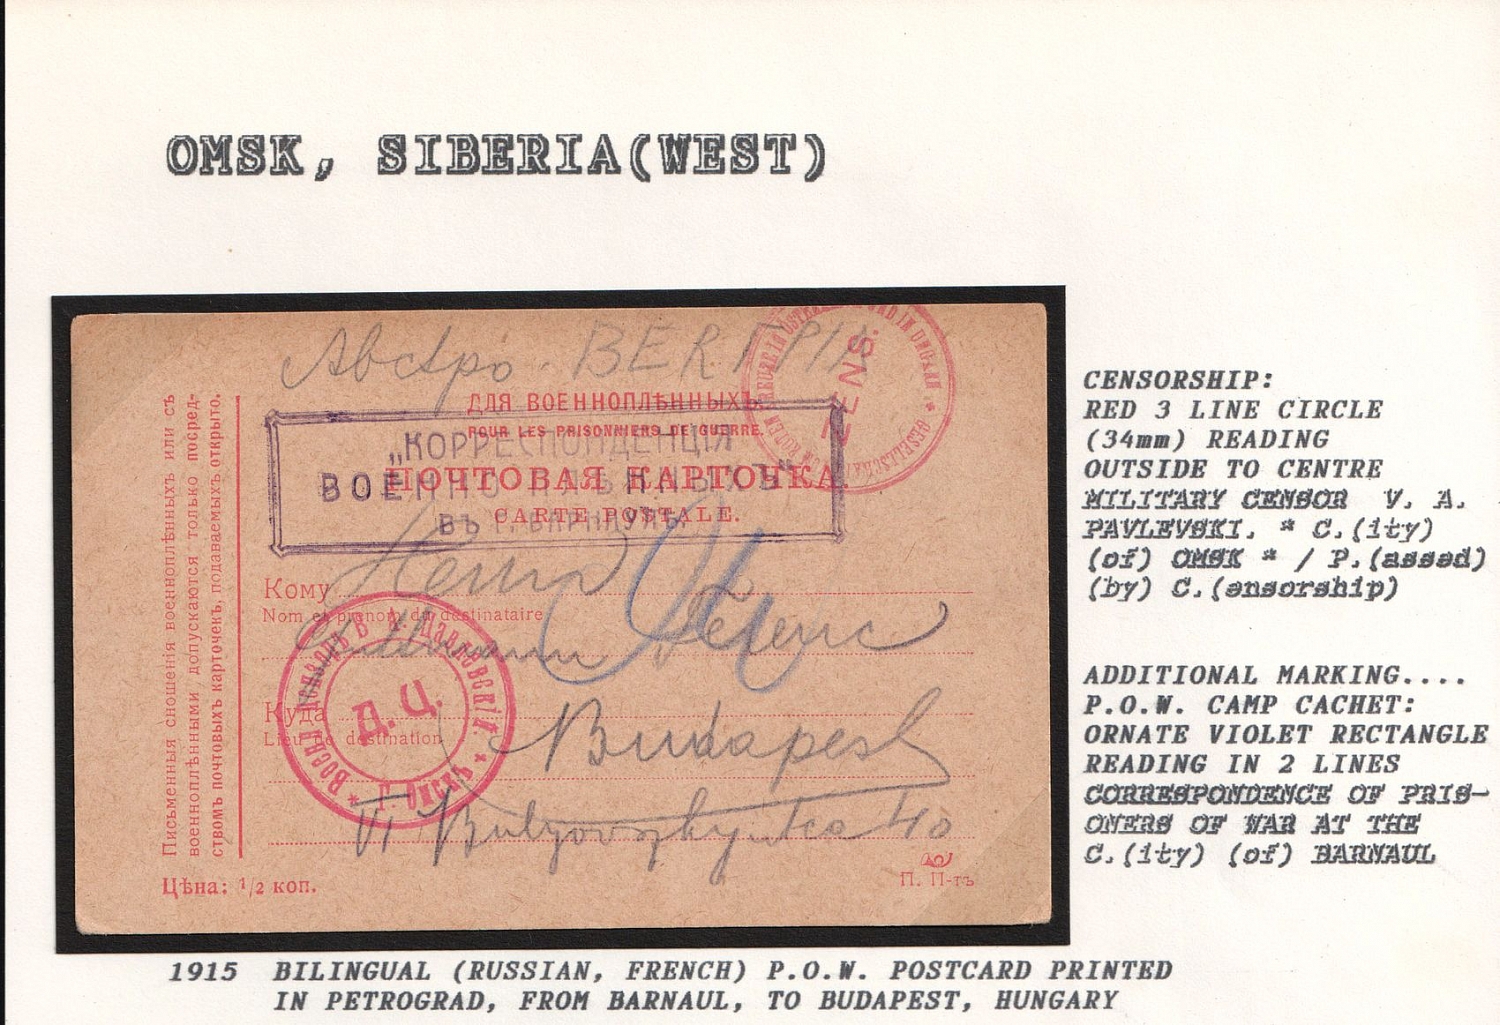 OMSK, SIBERIA(WEST)
Австро. ВЕНГРІЯ
ДЛЯ ВОЕННОПЛѢННЫХЪ.
POUR LES PRISONNIERS DE GUERRE.
„КОРРЕСПОНДЕНЦІЯ
ПОЧТОВАЯ КАРТОЧКА.
ВОЕННОПЛѢННЫХЪ“
CARTE POSTALE.
ВЪ Г. БАРНАУЛѢ.
ZENS.
Письменныя сношенія военноплѣнныхъ или съ
военноплѣнными допускаются только посред-
ствомъ почтовыхъ карточекъ, подаваемыхъ открыто.
Кому
Nom et prénom du destinataire
Ferenc
Куда
Lieu de destination
Budapest
VI 40
В. А. Павловскій.
Д. Ц.
Г. Омскъ
Цѣна: 1/2 коп.
П. П-тъ
CENSORSHIP:
RED 3 LINE CIRCLE
(34mm) READING
OUTSIDE TO CENTRE
MILITARY CENSOR V. A.
PAVLEVSKI. * C.(ity)
(of) OMSK * / P.(assed)
(by) C.(ensorship)
ADDITIONAL MARKING....
P.O.W. CAMP CACHET:
ORNATE VIOLET RECTANGLE
READING IN 2 LINES
CORRESPONDENCE OF PRIS-
ONERS OF WAR AT THE
C.(ity) (of) BARNAUL
1915 BILINGUAL (RUSSIAN, FRENCH) P.O.W. POSTCARD PRINTED
IN PETROGRAD, FROM BARNAUL, TO BUDAPEST, HUNGARY